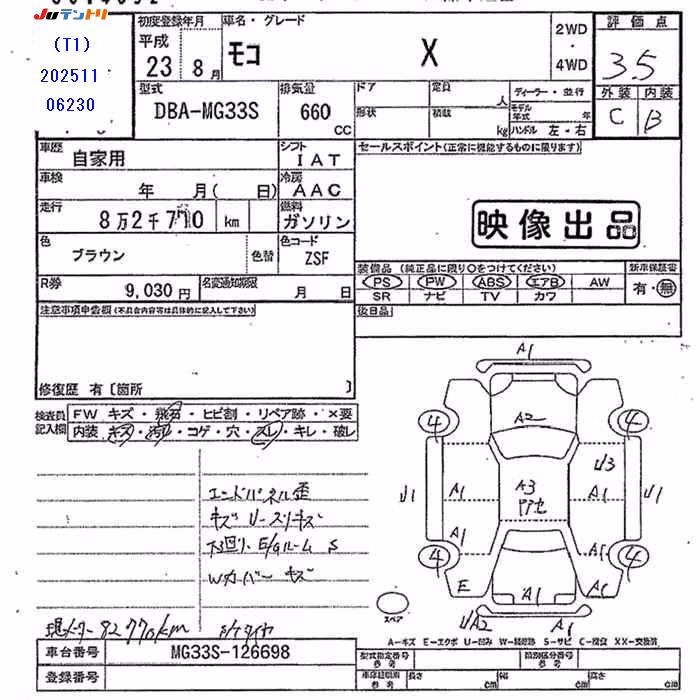 JUテントリ
(T1)
202511
06230
初度登録年月
車名・グレード
平成
23
8月
モコ
X
2WD
・
4WD
評価点
3.5
外装
内装
C
B
型式
DBA-MG33S
排気量
660
CC
ドア
形状
定員
人
積載
kg
ディーラー・並行
モデル年式
年
ハンドル 左・右
車歴
自家用
シフト
IAT
車検
年 月( 日)
冷房
AAC
走行
8万2千770 km
燃料
ガソリン
色
ブラウン
色替
色コード
ZSF
R券
9,030円
名変通知期限
月 日
セールスポイント(正常に機能するものに限ります)
映像出品
装備品 (純正品に限り○をつけてください)
新車保証書
PS
PW
ABS
エアB
AW
有・無
SR
ナビ
TV
カワ
後日品
注意事項申告欄(不具合内容等は具体的に記入して下さい)
修復歴 有〔箇所 〕
検査員記入欄
FW キズ・飛石・ヒビ割・リペア跡・×要
内装 キズ・汚れ・コゲ・穴・スレ・キレ・破レ
エンドパネル歪
キズ U-スリキズ
下回り、E/Gルーム S
Wカバー キズ
現メーター 82770km
スペア
A1
A2
A3
4
4
4
4
U3
U1
A1
A1
U1
A1
A1
E
A1
A1
UA2
A1
A-キズ E-エクボ U-凹み W-補修跡 S-サビ C-腐食 XX-交換済
車台番号
MG33S-126698
登録番号
型式指定番号
参考
類別区分番号
参考
車庫証明用
参考
長さ
cm
幅
cm
高さ
cm